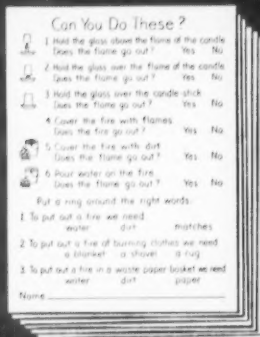 Can You Do These?
1. Hold the glass above the flame of the candle
Does the flame go out? Yes No
2. Hold the glass over the flame of the candle
Does the flame go out? Yes No
3. Hold the glass over the candle stick
Does the flame go out? Yes No
4. Cover the fire with flames
Does the fire go out? Yes No
5. Cover the fire with dirt
Does the flame go out? Yes No
6. Pour water on the fire
Does the flame go out? Yes No
Put a ring around the right words:
1. To put out a fire we need
water dirt matches
2. To put out a fire of burning clothes we need
a blanket a shovel a rug
3. To put out a fire in a waste paper basket we need
water dirt paper
Name